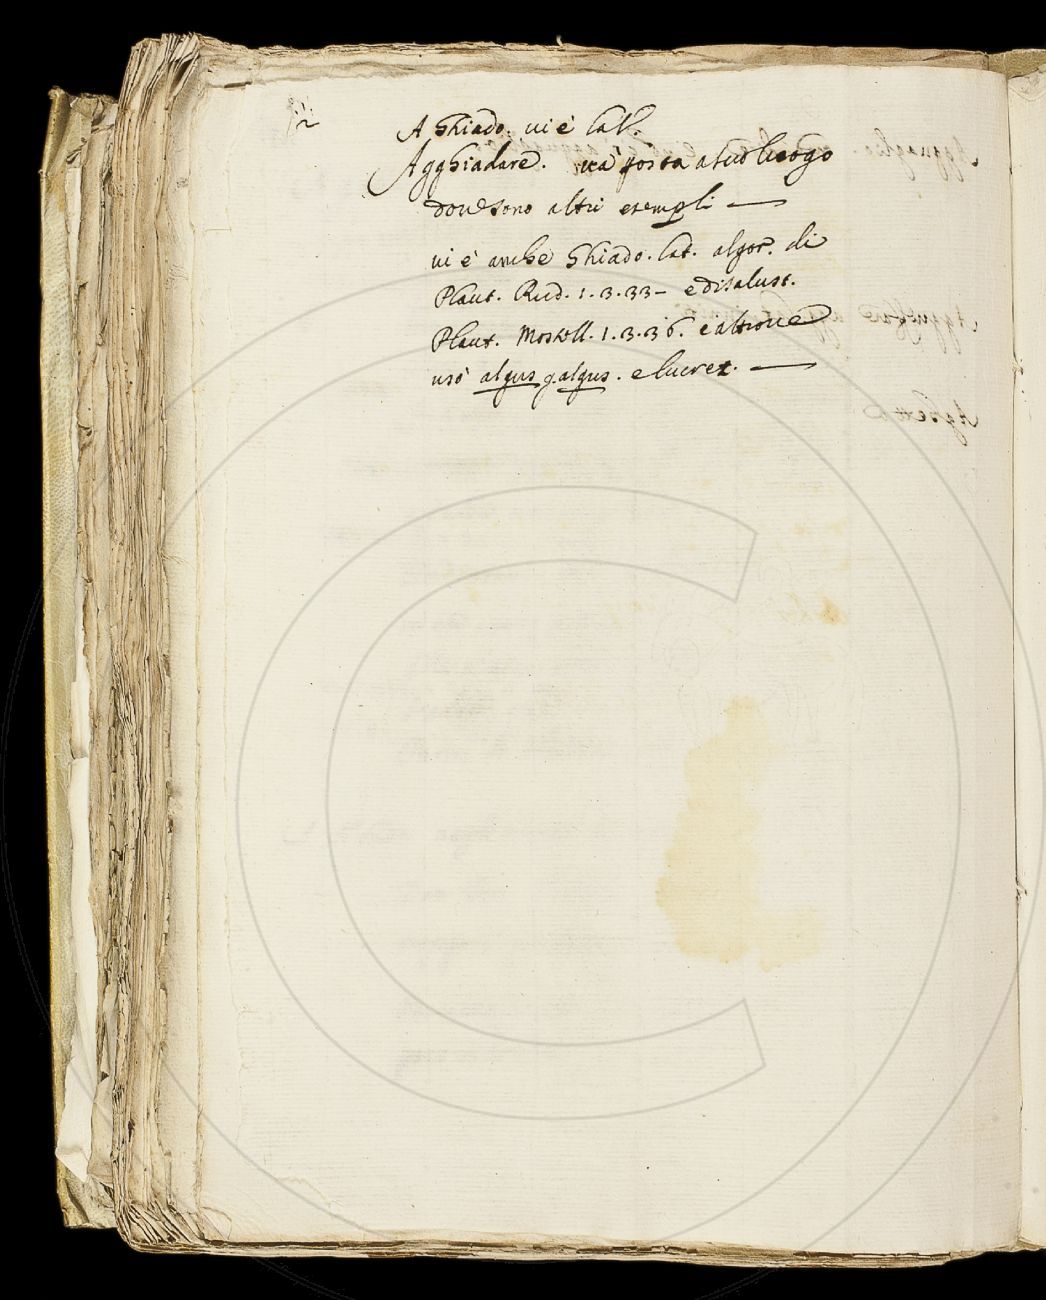 A Ghiado. ui è lat.
Agghiadare. ua posta a suo luogo
doue sono altri esempli —
ui è anche Ghiado. lat. algor. di
Plaut. Rud. 1.3.33 – e di Salust.
Plaut. Mostell. 1.3.36. e altroue
usò algus g. algus. e Lucret. —